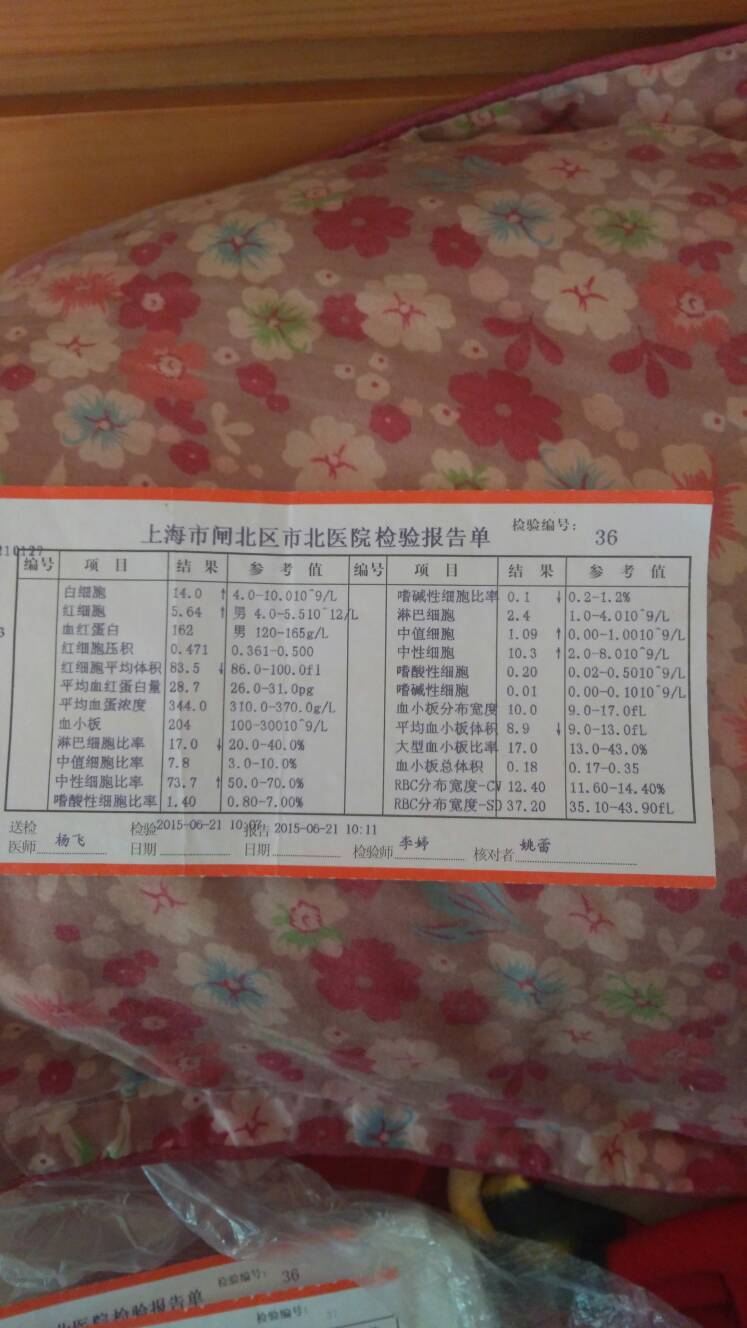 上海市闸北区市北医院检验报告单 检验编号: 36
编号 项 目 结 果 参 考 值 编号 项 目 结 果 参 考 值
白细胞 14.0 ↑ 4.0-10.010^9/L 嗜碱性细胞比率 0.1 ↓ 0.2-1.2%
红细胞 5.64 ↑ 男 4.0-5.510^12/L 淋巴细胞 2.4 1.0-4.010^9/L
血红蛋白 162 男 120-165g/L 中值细胞 1.09 ↑ 0.00-1.0010^9/L
红细胞压积 0.471 0.361-0.500 中性细胞 10.3 ↑ 2.0-8.010^9/L
红细胞平均体积 83.5 ↓ 86.0-100.0fl 嗜酸性细胞 0.20 0.02-0.5010^9/L
平均血红蛋白量 28.7 26.0-31.0pg 嗜碱性细胞 0.01 0.00-0.1010^9/L
平均血蛋浓度 344.0 310.0-370.0g/L 血小板分布宽度 10.0 9.0-17.0fL
血小板 204 100-30010^9/L 平均血小板体积 8.9 ↓ 9.0-13.0fL
淋巴细胞比率 17.0 ↓ 20.0-40.0% 大型血小板比率 17.0 13.0-43.0%
中值细胞比率 7.8 3.0-10.0% 血小板总体积 0.18 0.17-0.35
中性细胞比率 73.7 ↑ 50.0-70.0% RBC分布宽度-CV 12.40 11.60-14.40%
嗜酸性细胞比率 1.40 0.80-7.00% RBC分布宽度-SD 37.20 35.10-43.90fL
送检医师 杨飞 检验日期 2015-06-21 10:07 报告日期 2015-06-21 10:11 检验师 李婷 核对者 姚蕾
北医院检验报告单 检验编号: 36
检验编号: